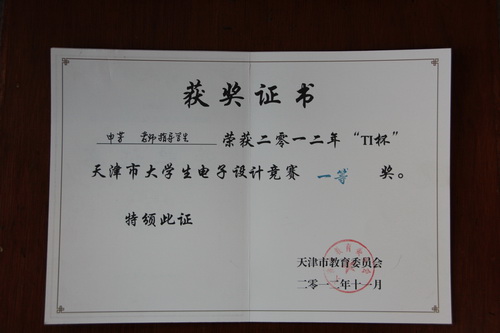 获奖证书
申芓 老师指导学生 荣获二零一二年“TI杯”
天津市大学生电子设计竞赛 一等 奖。
特颁此证
天津市教育委员会
二零一二年十一月